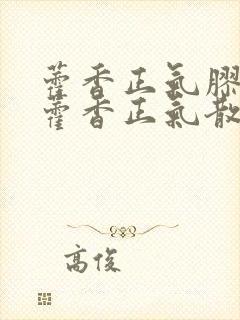 藿香正氣膠
藿香正氣散
高俊